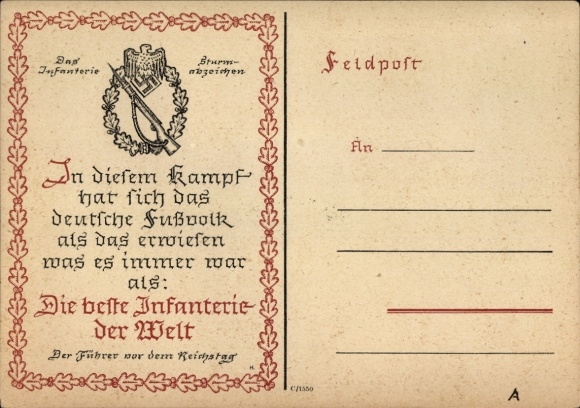 Das
Infanterie
Sturm-
abzeichen
In diesem Kampf
hat sich das
deutsche Fußvolk
als das erwiesen
was es immer war
als:
Die beste Infanterie
der Welt
Der Führer vor dem Reichstag
Feldpost
An
C/1550
A